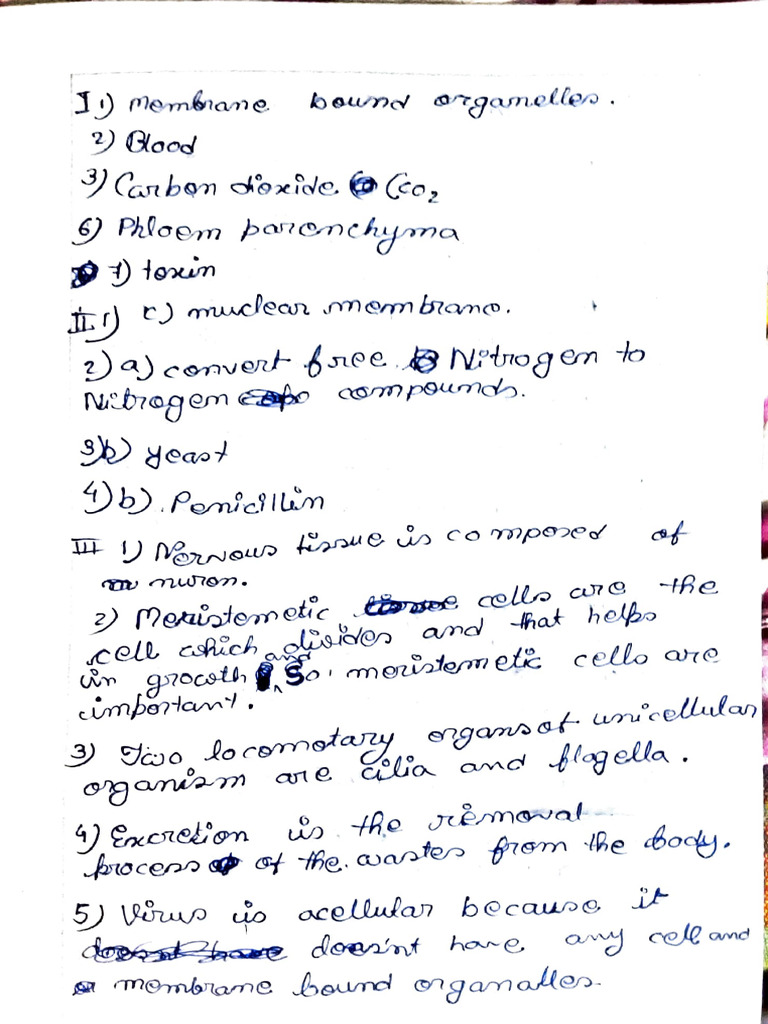 I 1) Membrane bound organelles.
2) Blood
3) Carbon dioxide (CO2
6) Phloem parenchyma
7) toxin
II. 1) c) nuclear membrane.
2) a) convert free Nitrogen to
Nitrogen compounds.
3) b) yeast
4) b). Penicillin
III 1) Nervous tissue is composed of
nuron.
2) Meristemetic cells are the
cell which divides and that helps
in growth and So, meristemetic cells are
important.
3) Two locomotary organs of unicellular
organism are cilia and flagella.
4) Excretion is the removal
process of the wastes from the body.
5) Virus is acellular because it
doesn't have any cell and
membrane bound organalles.